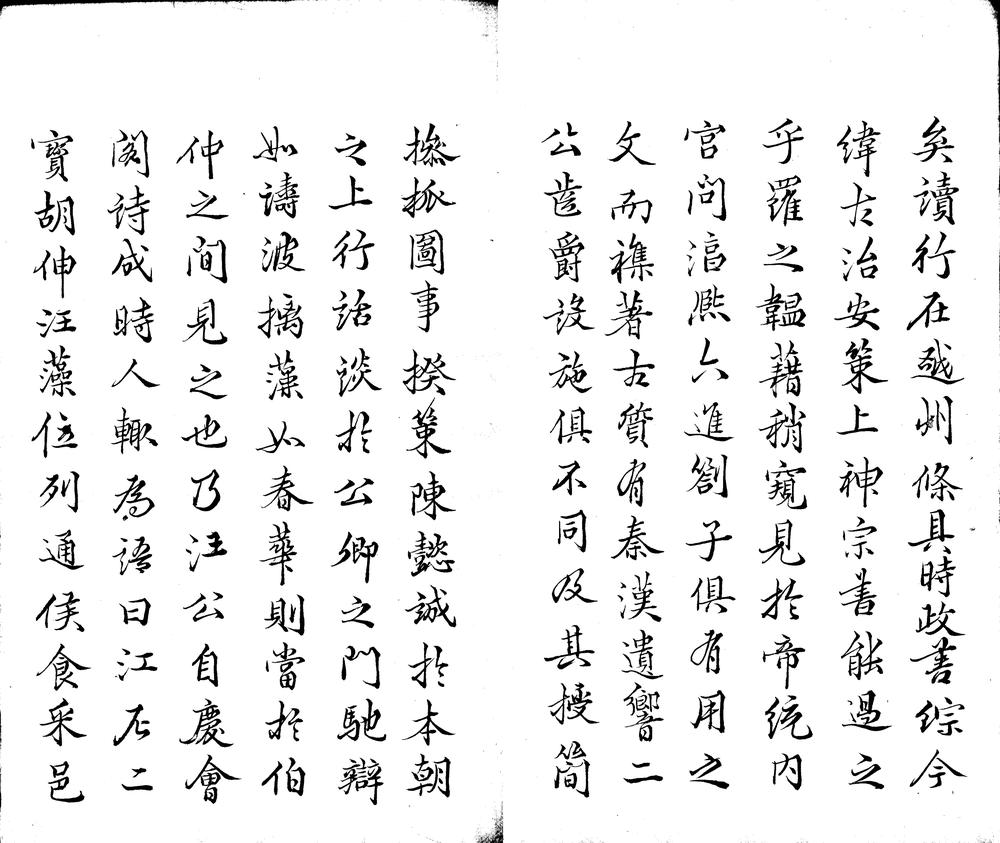 矣讀行在越州條具時政善綜今
緯古治安策上神宗書能過之
乎羅之韞藉稍窺見於帝統内
宫問滈熈六進劄子俱有用之
文而襍著古質有秦漢遺響二
公齒爵設施俱不同及其授簡
摻抓圖事揆策陳懿誠於本朝
之上行話談於公卿之門馳辯
如濤波摛藻如春華則當於伯
仲之間見之也乃汪公自慶會
閣詩成時人輙為語曰江左二
寶胡伸汪藻位列通侯食采邑